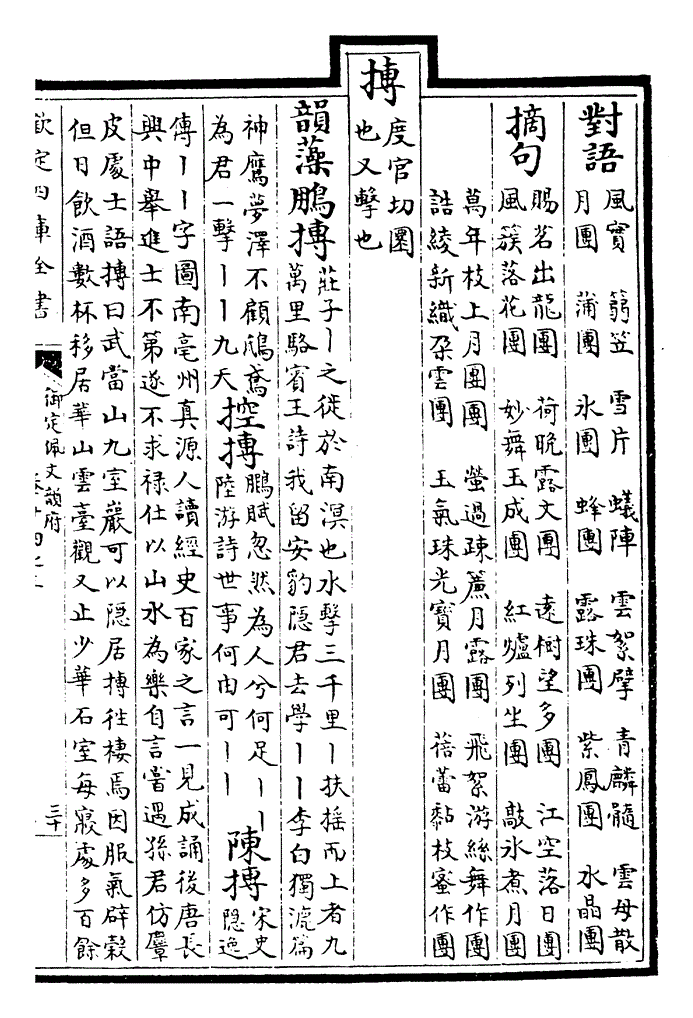 對語
風實 篛笠 雪片 蟻陣 雲絮擘 青麟髓 雲母散
月團 蒲團 氷團 蜂團 露珠團 紫鳳團 水晶團
摘句
賜茗出龍團 荷晚露文團 遠樹望多團 江空落日團
風簇落花團 妙舞玉成團 紅爐列坐團 敲氷煮月團
萬年枝上月團團 螢過疎簾月露團 飛絮游絲舞作團
誥綾新織朵雲團 玉氣珠光寶月團 蓓蕾黏枝蜜作團
摶
度官切團
也又擊也
韻藻
鵬摶
莊子丨之徙於南溟也水擊三千里丨扶摇而上者九
萬里駱賓王詩我留安豹隠君去學丨丨李白獨漉篇
神鷹夢澤不顧鴟鳶
為君一擊丨丨九天
控摶
鵬賦忽然為人兮何足丨丨
陸游詩世事何由可丨丨
陳摶
宋史
隠逸
傳丨丨字圖南亳州真源人讀經史百家之言一見成誦後唐長
興中舉進士不第遂不求禄仕以山水為樂自言嘗遇孫君仿麞
皮處士語摶曰武當山九室巖可以隠居摶徃棲焉因服氣辟穀
但日飲酒數杯移居華山雲臺觀又止少華石室每寢處多百餘
欽定四庫全書
御定佩文韻府
三十